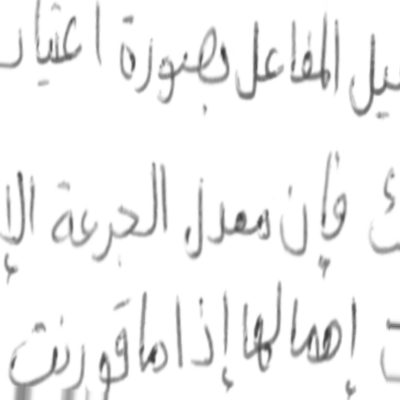 المفاعل بصورة اعتيا
فإن معدل الجرعة الإ
إهمالها إذا ما قورنت